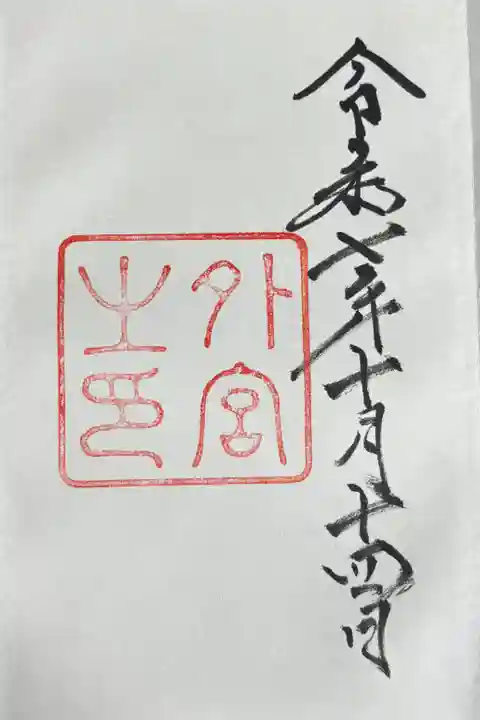 令和七年十月十四日
外宮
之印